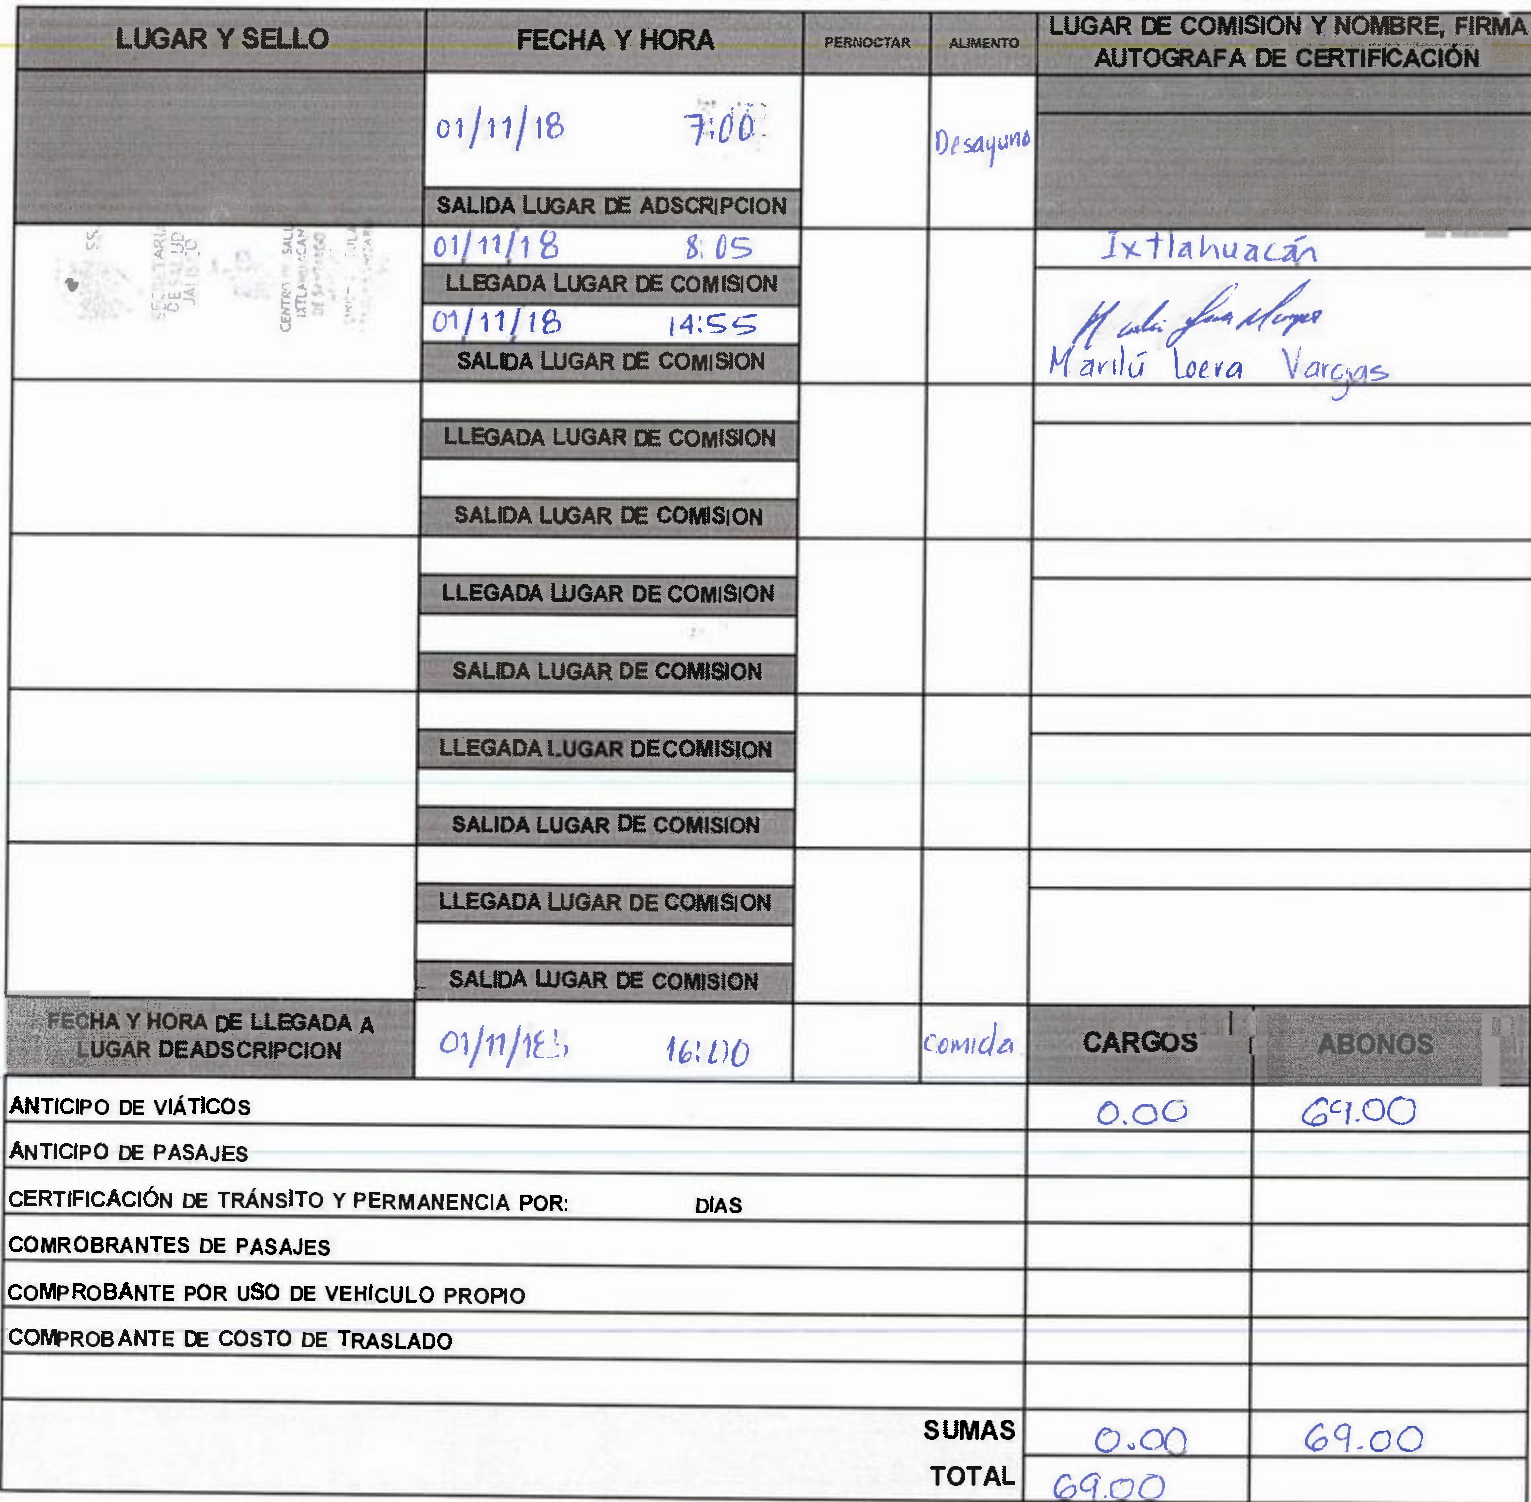 LUGAR Y SELLO FECHA Y HORA PERNOCTAR ALIMENTO LUGAR DE COMISION Y NOMBRE, FIRMA
AUTOGRAFA DE CERTIFICACIÓN
01/11/18 7:00 Desayuno
SALIDA LUGAR DE ADSCRIPCION
SECRETARIA
DE SALUD
CENTRO SALU
IXTLAHUACAN
DE
01/11/18 8:05 Ixtlahuacán
LLEGADA LUGAR DE COMISION
01/11/18 14:55
SALIDA LUGAR DE COMISION Marilú Loera Vargas
LLEGADA LUGAR DE COMISION
SALIDA LUGAR DE COMISION
LLEGADA LUGAR DE COMISION
SALIDA LUGAR DE COMISION
LLEGADA LUGAR DECOMISION
SALIDA LUGAR DE COMISION
LLEGADA LUGAR DE COMISION
SALIDA LUGAR DE COMISION
FECHA Y HORA DE LLEGADA A
LUGAR DEADSCRIPCION 01/11/18 16:00 comida CARGOS ABONOS
ANTICIPO DE VIÁTICOS 0.00 69.00
ANTICIPO DE PASAJES
CERTIFICACIÓN DE TRÁNSITO Y PERMANENCIA POR: DIAS
COMROBRANTES DE PASAJES
COMPROBANTE POR USO DE VEHÍCULO PROPIO
COMPROBANTE DE COSTO DE TRASLADO
SUMAS 0.00 69.00
TOTAL 69.00